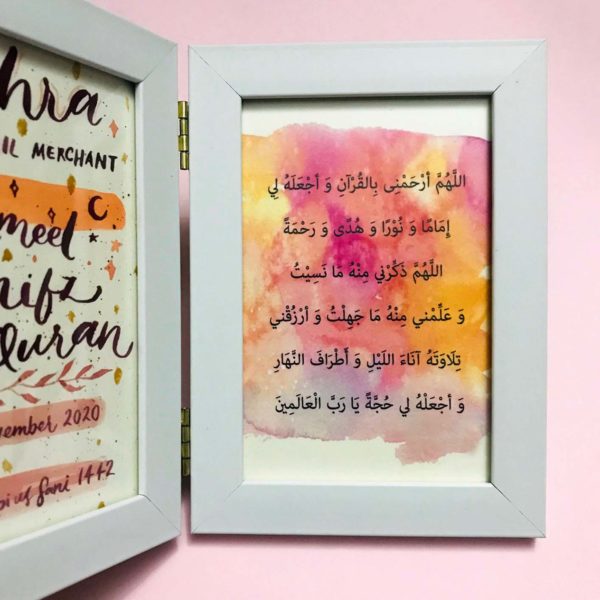 hra
IL MERCHANT
meel
hifz
Quran
vember 2020
us Sani 1442
اللَّهُمَّ أرْحَمْنِى بِالقُرْآنِ وَ أجْعَلَهُ لِي
إمَامًا وَ نُورًا وَ هُدًى وَ رَحْمَةً
اللَّهُمَّ ذَكِّرْنِي مِنْهُ مَا نَسِيْتُ
وَ عَلِّمْنِي مِنْهُ مَا جَهِلْتُ وَ أرْزُقْنِي
تِلَاوَتَهُ آنَاءَ اللَيْلِ وَ أَطْرَافَ النَّهَارِ
وَ أجْعَلْهُ لِي حُجَّةً يَا رَبَّ الْعَالَمِينَ